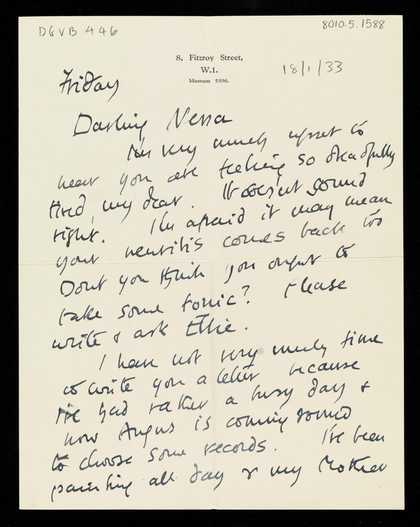 DGVB 446
8010.5.1588
8, Fitzroy Street,
W.1.
Museum 5906.
18/1/33
Friday
Darling Nessa
I'm very much upset to
hear you are feeling so dreadfully
tired, my dear. It doesn't sound
right. I'm afraid it may mean
your neuritis comes back too
Dont you think you ought to
take some tonic? Please
write & ask Ellie.
I have not very much time
to write you a letter because
I've had rather a busy day &
now Angus is coming round
to choose some records. I've been
painting all day & my Mother